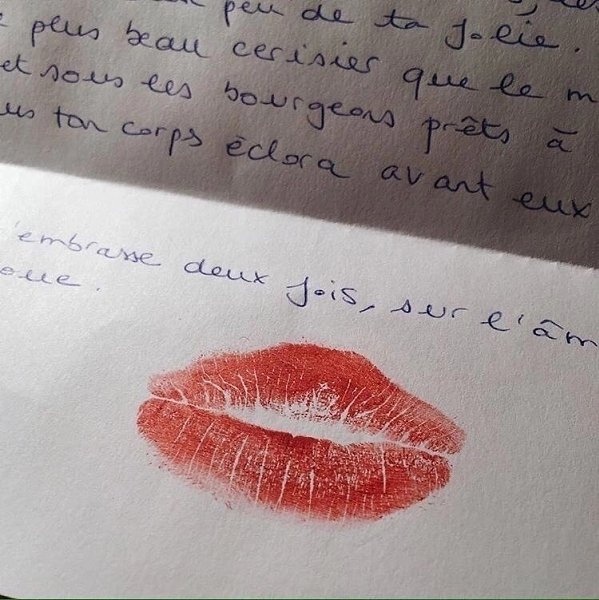 peu de ta folie.
plus beau cerisier que le m
et sous les bourgeons prêts à
us ton corps éclora avant eux
'embrasse deux fois, sur l'âm
oue.